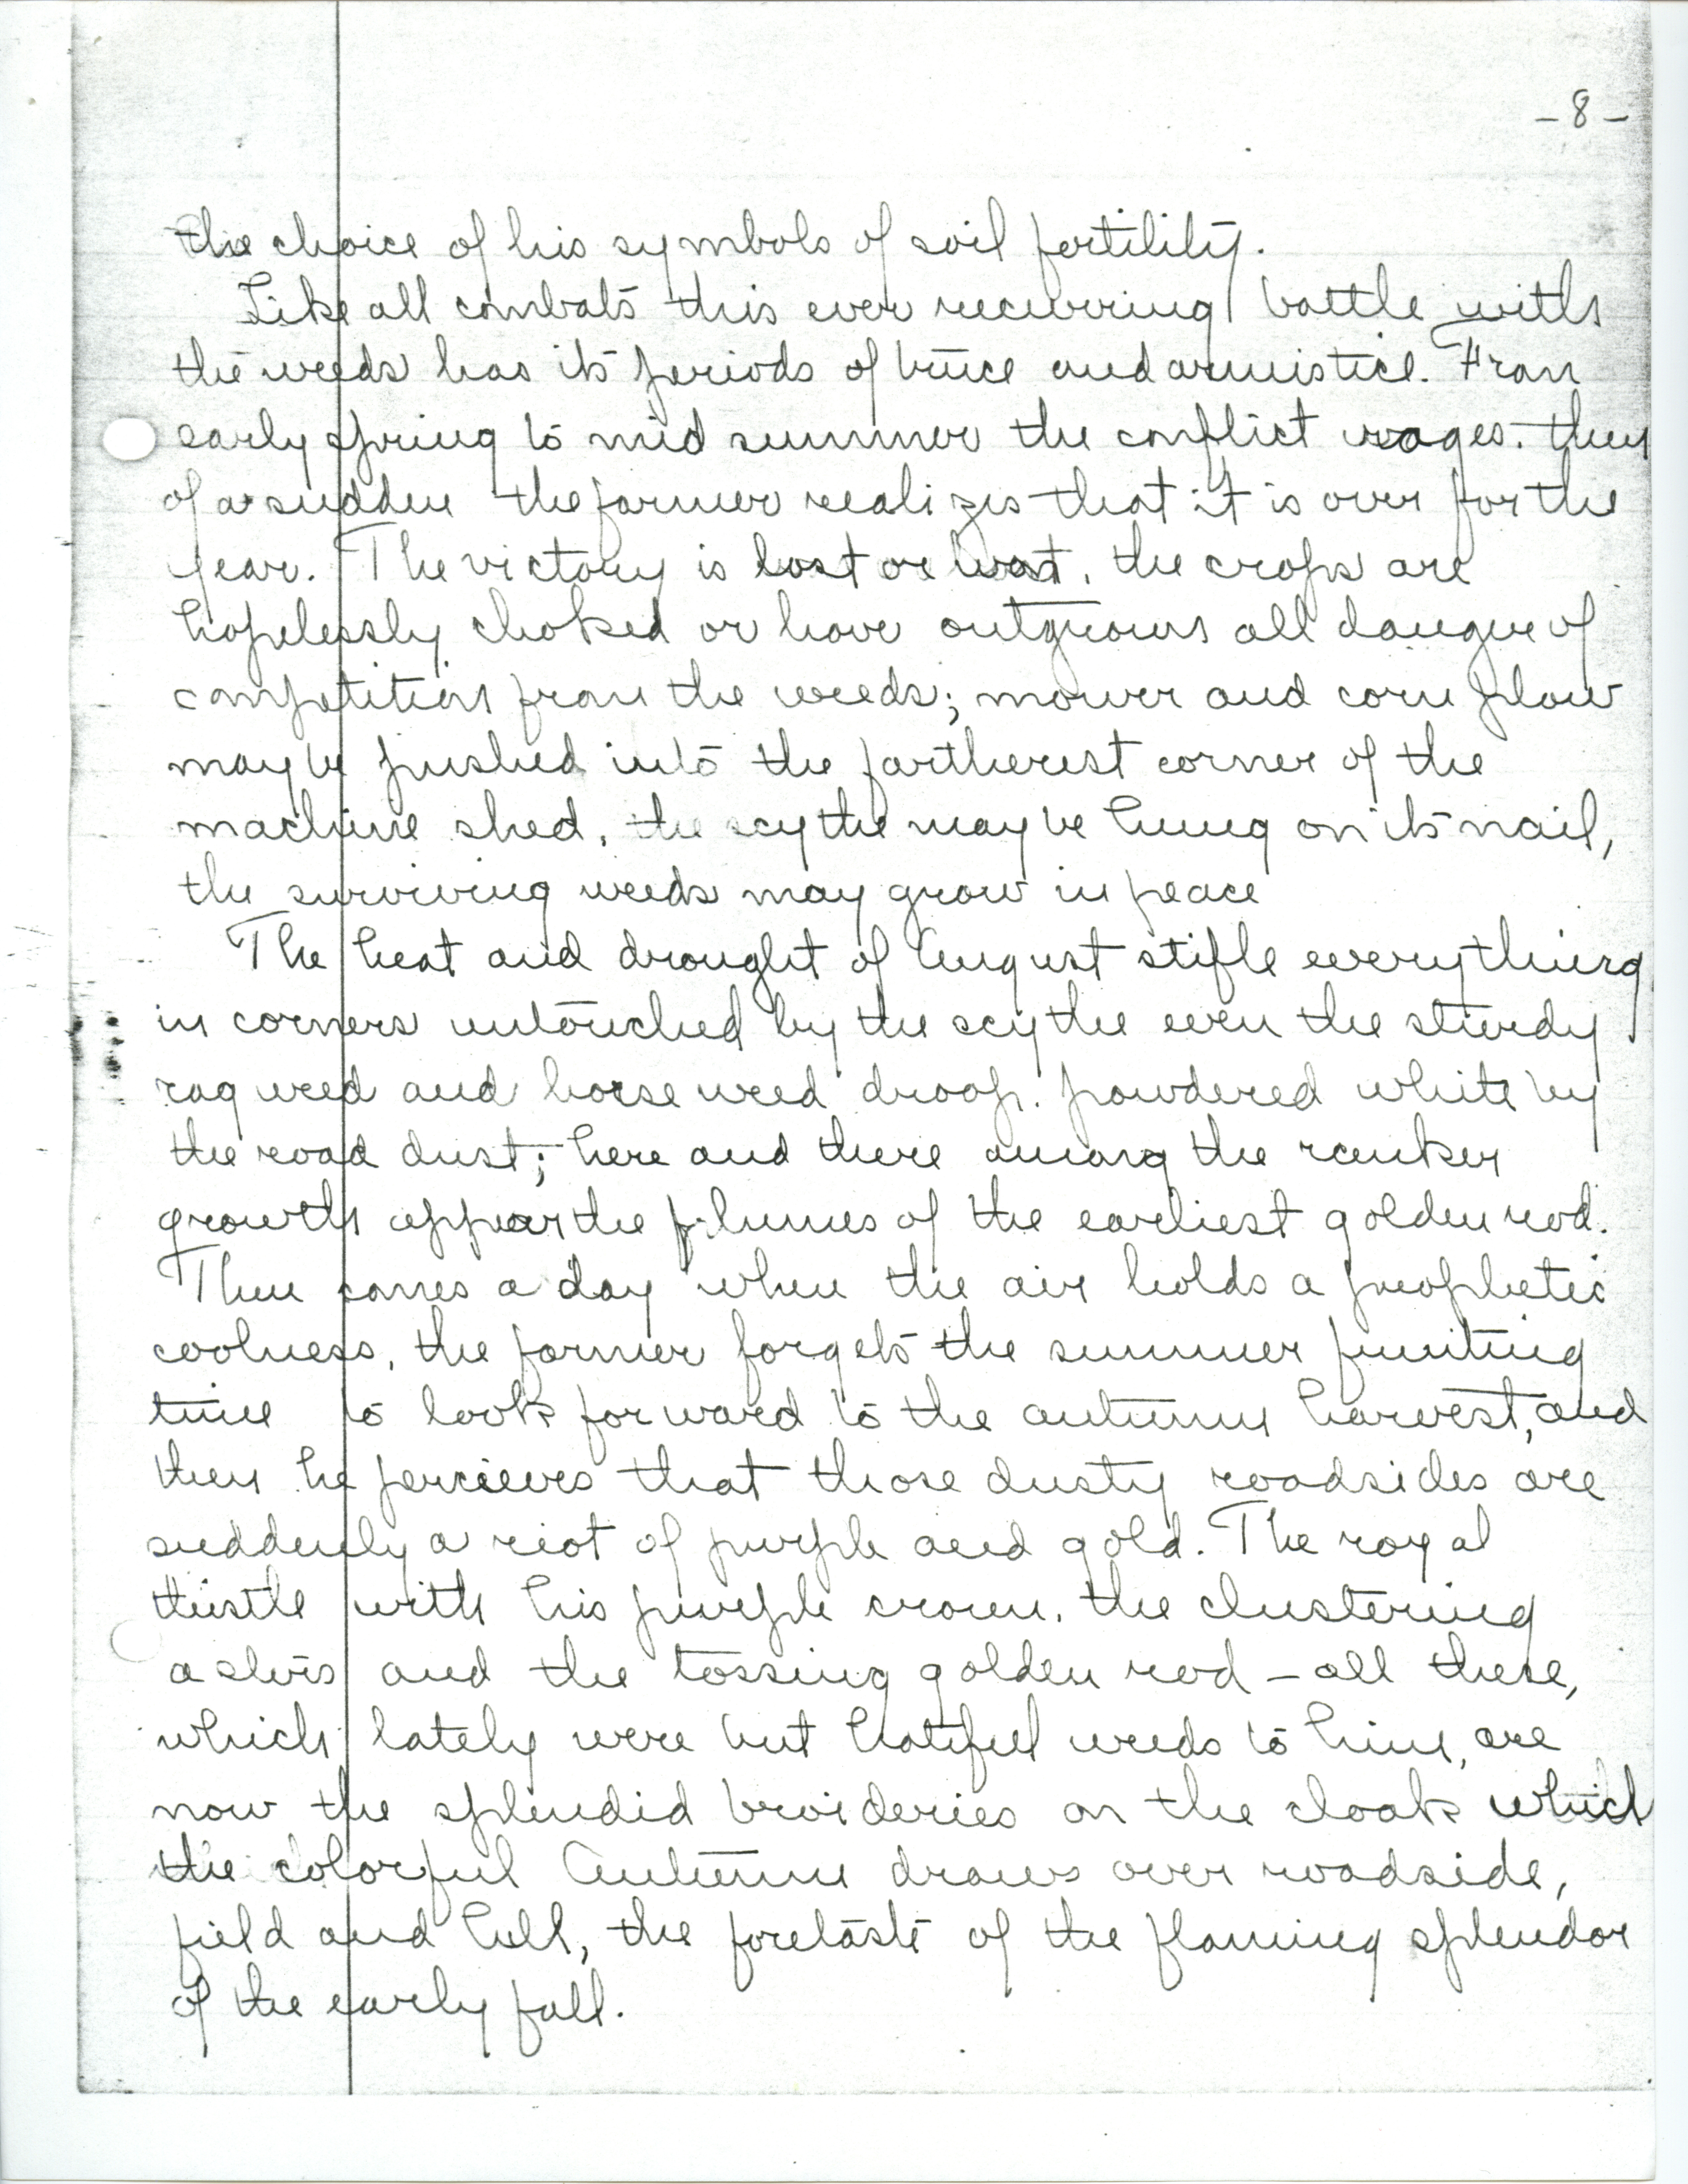 -8-
the choice of his symbols of soil fertility.
Like all combats this ever recurring battle with
the weeds has its periods of truce and armistice. From
early spring to mid summer the conflict rages. then
of a sudden the farmer realizes that it is over for the
year. The victory is lost or won, the crops are
hopelessly choked or have outgrown all danger of
competition from the weeds; mower and corn plow
may be pushed into the fartherest corner of the
machine shed, the scythe may be hung on its nail,
the surviving weeds may grow in peace
The heat and drought of August stifle everything
in corners untouched by the scythe even the sturdy
rag weed and horse weed droop. powdered white by
the road dust; here and there among the ranker
growth appear the plumes of the earliest golden rod.
Then comes a day when the air holds a prophetic
coolness, the farmer forgets the summer fruiting
time to look forward to the autumn harvest, and
then he percieves that those dusty roadsides are
suddenly a riot of purple and gold. The royal
thistle with his purple crown, the clustering
asters and the tossing golden rod - all these,
which lately were but hateful weeds to him, are
now the splendid broideries on the cloak which
the colorful Autumn draws over roadside,
field and hill, the foretaste of the flaming splendor
of the early fall.